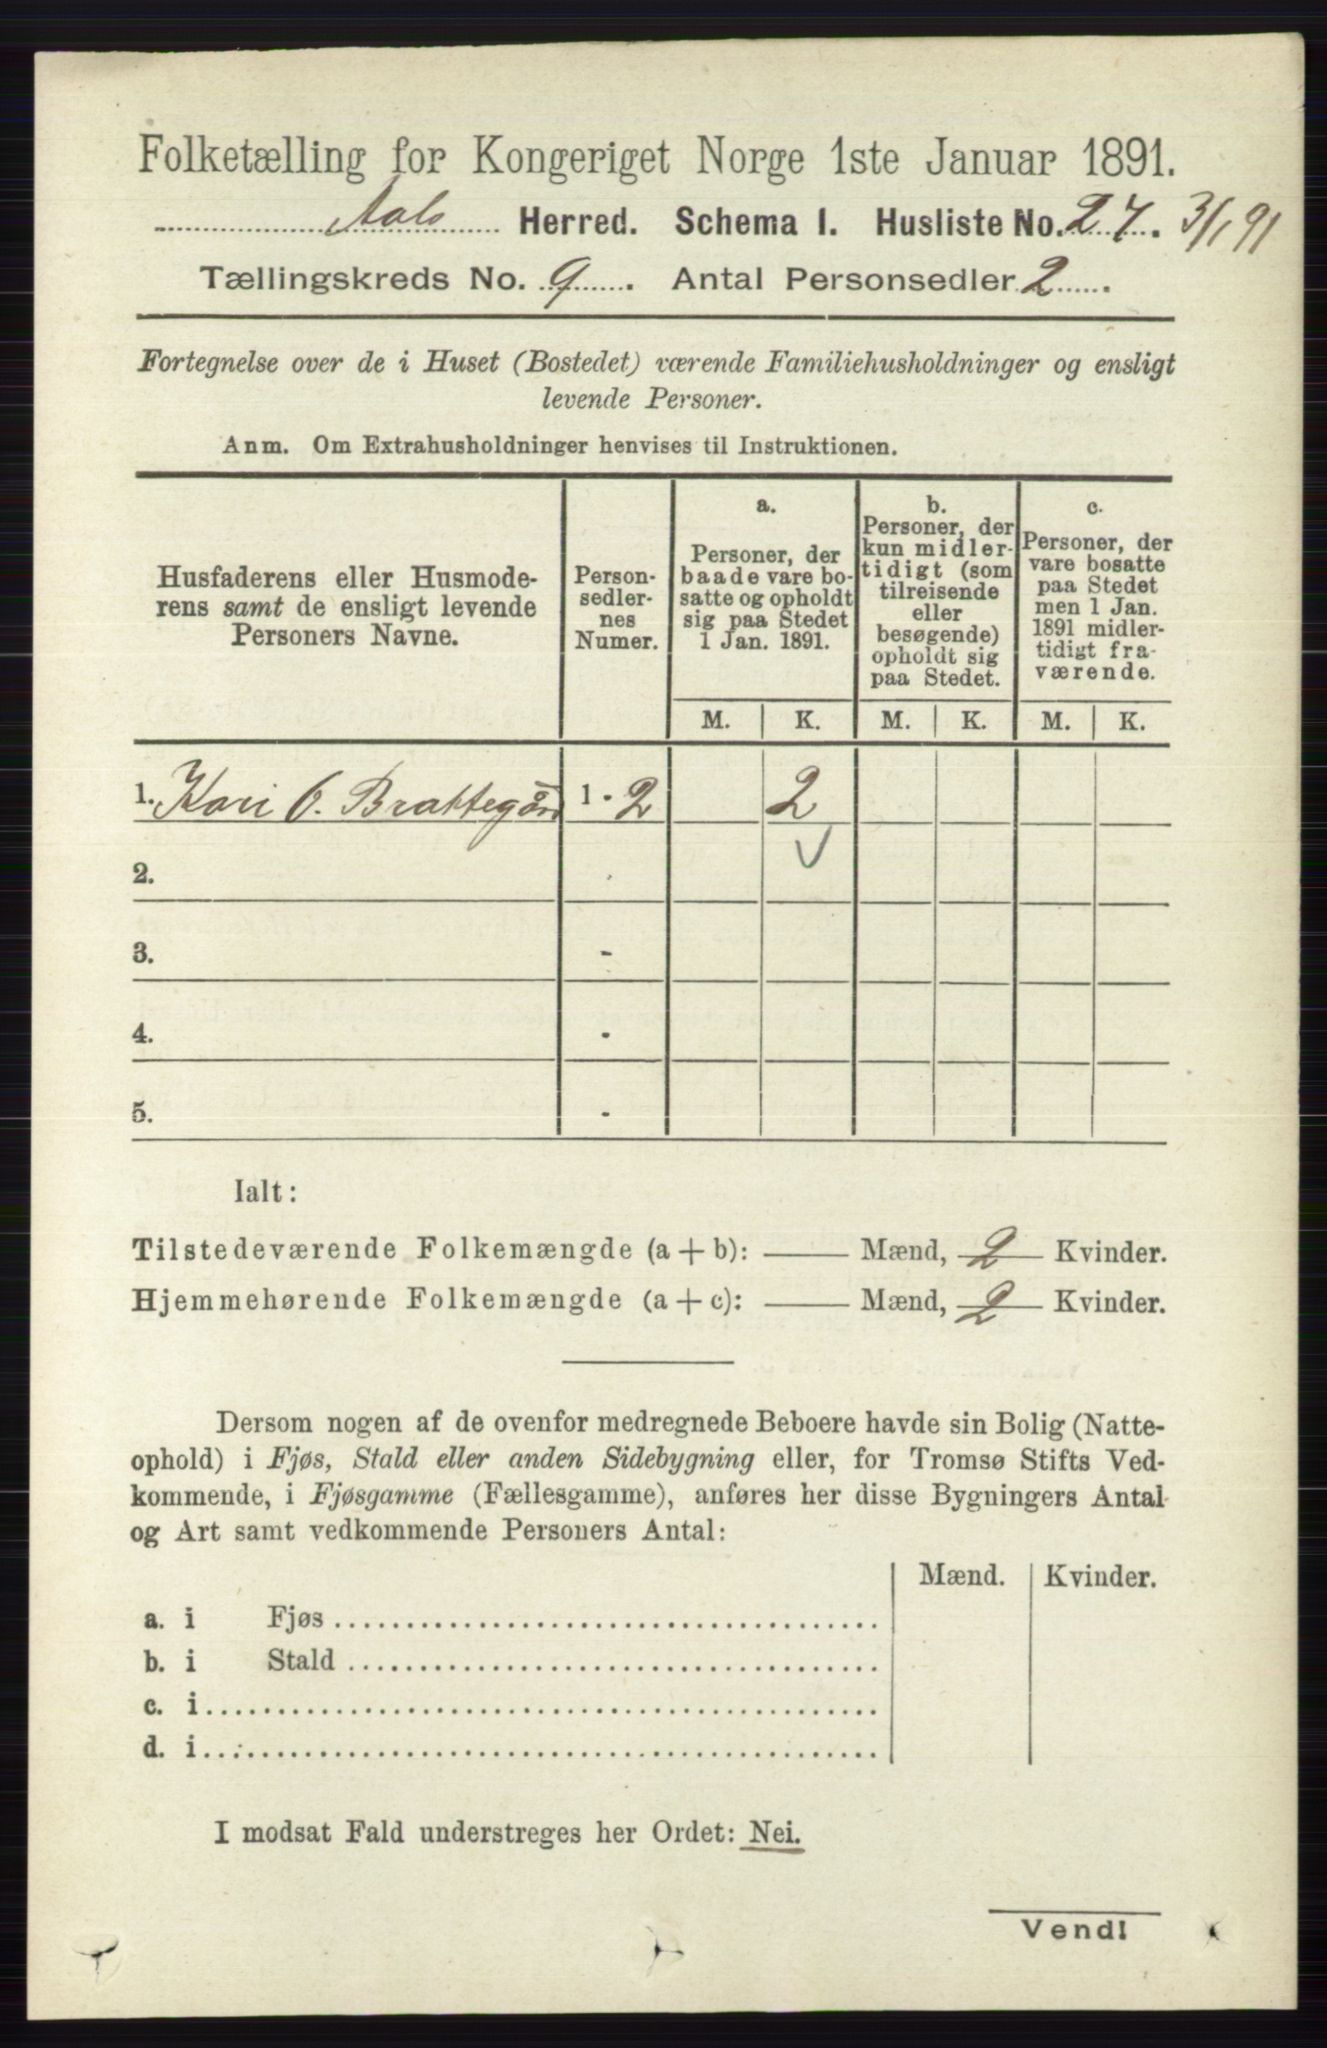 Folketælling for Kongeriget Norge 1ste Januar 1891.
Aals Herred. Schema I. Husliste No. 27. 3/1 91
Tællingskreds No. 9. Antal Personsedler 2.
Fortegnelse over de i Huset (Bostedet) værende Familiehusholdninger og ensligt
levende Personer.
Anm. Om Extrahusholdninger henvises til Instruktionen.
Husfaderens eller Husmode-
rens samt de ensligt levende
Personers Navne.
Person-
sedler-
nes
Numer.
a.
Personer, der
baade vare bo-
satte og opholdt
sig paa Stedet
1 Jan. 1891.
b.
Personer, der
kun midler-
tidigt (som
tilreisende
eller
besøgende)
opholdt sig
paa Stedet.
c.
Personer, der
vare bosatte
paa Stedet
men 1 Jan.
1891 midler-
tidigt fra-
værende.
M. K. M. K. M. K.
1. Kari O. Brattegård 1 - 2 2
2.
3. -
4. -
5. -
Ialt:
Tilstedeværende Folkemængde (a + b): Mænd, 2 Kvinder.
Hjemmehørende Folkemængde (a + c): Mænd, 2 Kvinder.
Dersom nogen af de ovenfor medregnede Beboere havde sin Bolig (Natte-
ophold) i Fjøs, Stald eller anden Sidebygning eller, for Tromsø Stifts Ved-
kommende, i Fjøsgamme (Fællesgamme), anføres her disse Bygningers Antal
og Art samt vedkommende Personers Antal:
Mænd. Kvinder.
a. i Fjøs
b. i Stald
c. i
d. i
I modsat Fald understreges her Ordet: Nei.
Vend!